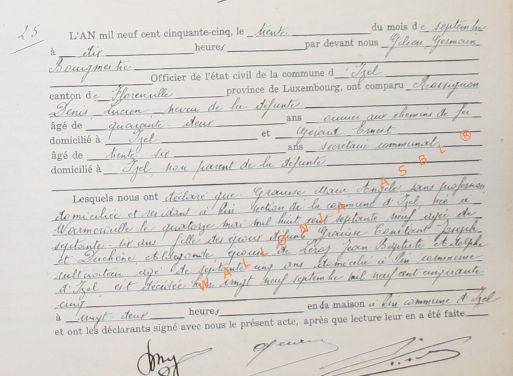 25
L'AN mil neuf cent cinquante-cinq, le trente du mois de septembre
à dix heures par devant nous Gilson Germain
Bourgmestre
Officier de l'état civil de la commune d'Izel
canton de Florenville province de Luxembourg, ont comparu Rossignon
Denis Lucien neveu de la défunte
âgé de quarante deux ans ouvrier aux chemins de fer
domicilié à Izel et Gérard Ernest
âgé de trente six ans secrétaire communal
domicilié à Izel non parent de la défunte
Lesquels nous ont déclaré que Marie Angèle sans profession
domiciliée et résidant à Pin section de la commune d'Izel née à
le quatorze mai mil huit cent septante neuf âgée de
septante six ans fille des époux défunts Constant Joseph
et Duchêne épouse de Jean Baptiste Adolphe
cultivateur âgé de septante cinq ans domicilié à Pin commune
d'Izel est décédée le vingt neuf septembre mil neuf cent cinquante
cinq
à vingt deux heures en sa maison à Pin commune d'Izel
et ont les déclarants signé avec nous le présent acte, après que lecture leur en a été faite
WALLONIA ASBL ®